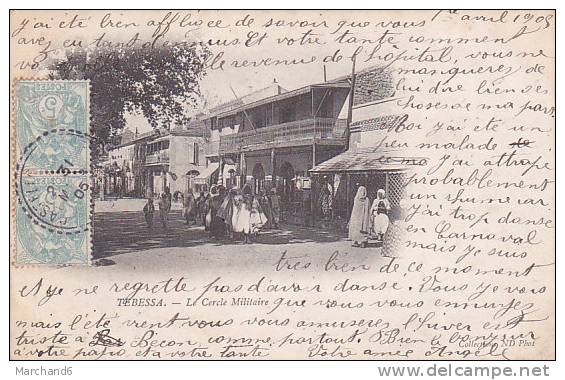 1er avril 1905
j'ai été bien affligée de savoir que vous
avez eu tant d'ennuis. Et votre tante comment
va elle revenue de l'hôpital, vous ne
manquerez de
lui dire bien des
choses de ma part.
Moi j'ai été un
peu malade
comme j'ai attrapé
probablement
un rhume car
j'ai trop dansé
en Carnaval
mais je suis
très bien de ce moment
et je ne regrette pas d'avoir dansé. Vous je vois
TÉBESSA. — Le Cercle Militaire
que vous vous ennuyez
mais l'été vient vous vous amuserez l'hiver est
triste à Bécon, comme partout. Bien le bonjour
à votre papa, et à votre tante Votre amie Angèle
Collections ND Phot